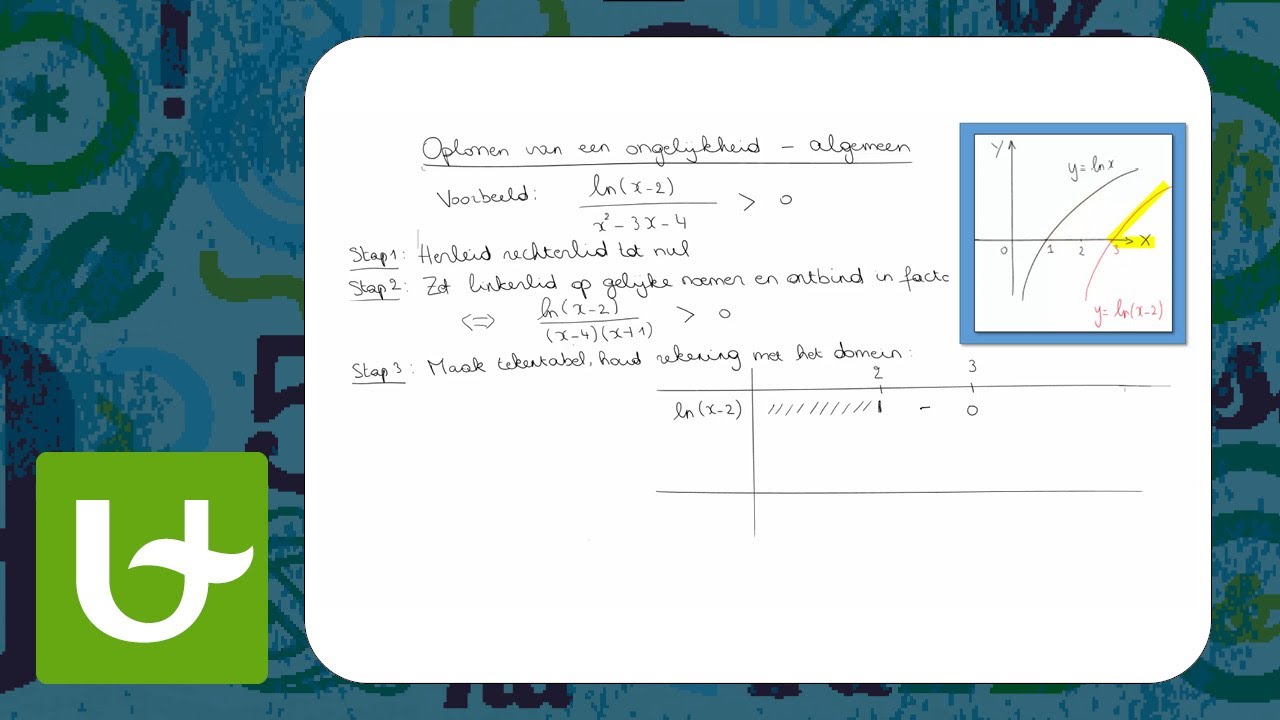 Oplossen van een ongelijkheid – algemeen
Voorbeeld: ln(x-2) / (x² - 3x - 4) > 0
Stap 1: Herleid rechterlid tot nul
Stap 2: Zet linkerlid op gelijke noemer en ontbind in facto
⇔ ln(x-2) / ((x-4)(x+1)) > 0
Stap 3: Maak tekentabel, houd rekening met het domein:
2 3
ln(x-2) ////////// | - 0
Y
y = ln x
0 1 2 3 X
y = ln(x-2)